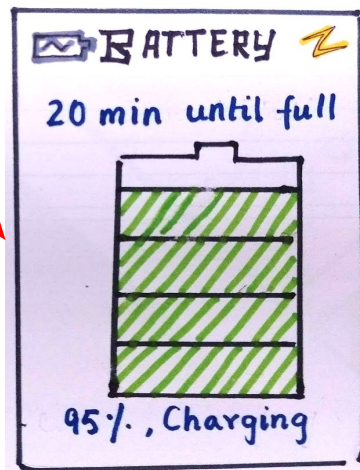 BATTERY
20 min until full
95%, Charging